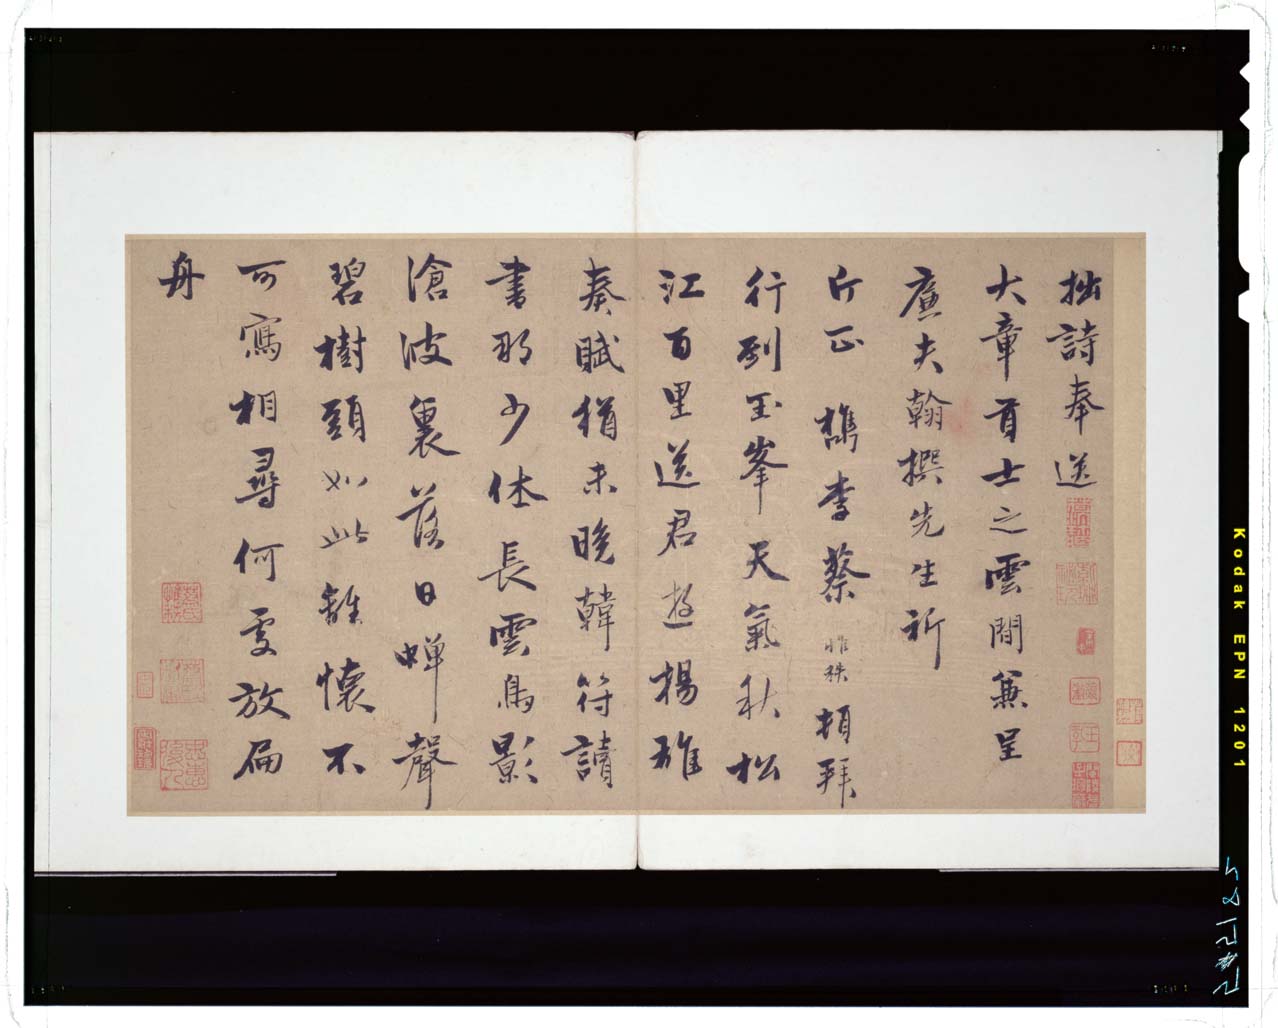 拙詩奉送
大章貢士之雲間兼呈
廉夫翰撰先生祈
斤正 檇李蔡 頓拜
行到玉峯天氣秋松
江百里送君遊楊雄
奏賦猶未晚韓符讀
書那少休長雲鳥影
滄波裏落日蟬聲
碧樹頭如此離懷不
可寫相尋何處放扁
舟
Kodak EPN 1201